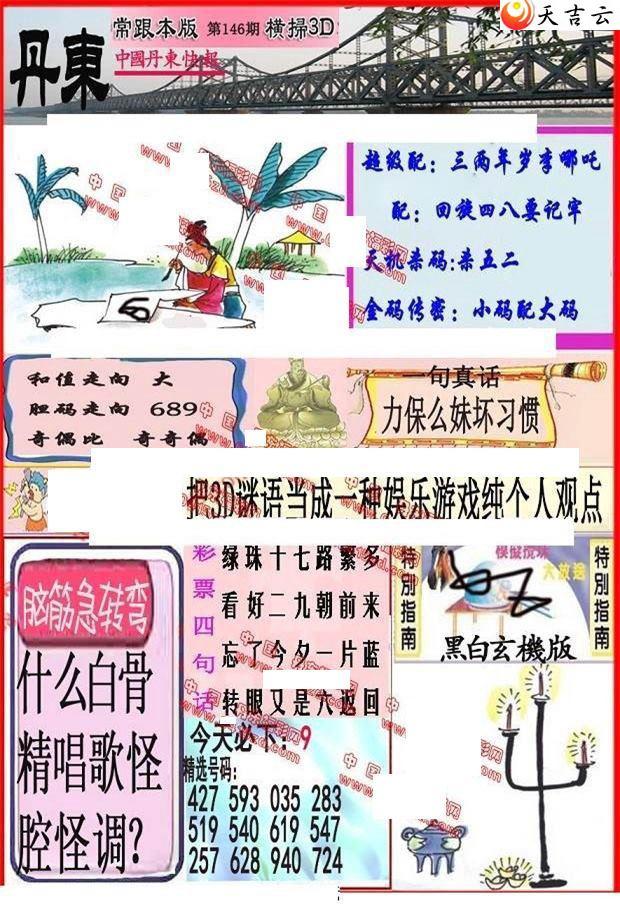 天吉云
常跟本版 第146期 横掃3D
丹東
中國丹東快報
超级配：三两年岁李哪吒
配：回旋四八要记牢
天机杀码:杀五二
金码传密：小码配大码
和值走向 大
胆码走向 689
奇偶比 奇奇偶
一句真话
力保么妹坏习惯
把3D谜语当成一种娱乐游戏纯个人观点
脑筋急转弯
什么白骨
精唱歌怪
腔怪调?
彩票四句话
绿珠十七路繁多
看好二九朝前来
忘了今夕一片蓝
转眼又是六返回
今天必下：9
精选号码：
427 593 035 283
519 540 619 547
257 628 940 724
特別指南
模拟搅珠
大放送
特別指南
黑白玄機版